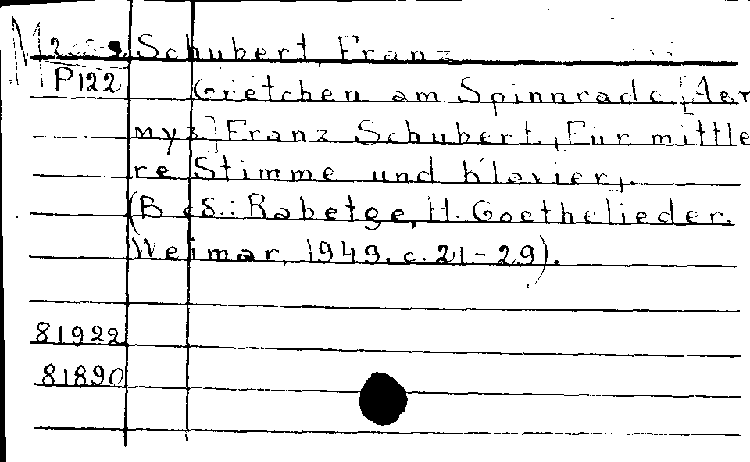 M Schubert, Franz
P122
Gretchen am Spinnrade [der
myz] Franz Schubert, Für mittle
re Stimme und Klavier,.
(B es.: Rabetge, H. Goethelieder.
Weimar, 1949. c. 21-29).
81922
81890